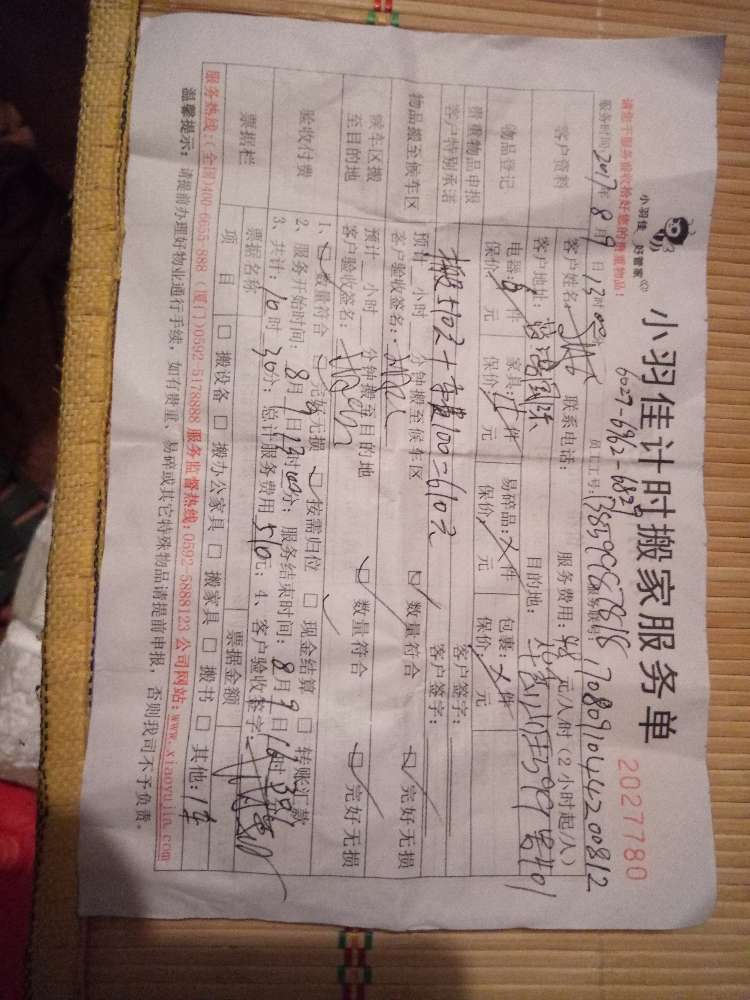 小羽佳 好管家
小羽佳计时搬家服务单
2027780
请您于服务前收拾好您的贵重物品!
6027-6962-6832
服务时间:2017年8月9日13时00分 员工工号: 服务账号:17080910444200812
客户资料 客户姓名: 联系电话: 服务费用: 元/人/时(2小时起/人)
客户地址: 目的地:
物品登记 电器: 件 家具: 件 易碎品: 件 包裹: 件
保价 元 保价: 元 保价: 元 保价: 元
贵重物品申报 客户签字:
客户特别承诺 搬510元+ 100=610元 客户签字:
物品搬至候车区 预计 小时 分钟搬至候车区 数量符合 完好无损
客户验收签名:
候车区搬至目的地 预计 小时 分钟搬至目的地 数量符合 完好无损
客户验收签名:
验收付费 1、数量符合 完好无损 按需归位 现金结算 转账汇款
2、服务开始时间:8月9日13时00分;服务结束时间:8月9日16时30分
3、共计:10时30分;总计服务费用510元;4、客户验收签字:
票据栏 票据名称 票据金额
项目 搬设备 搬办公家具 搬家具 搬书 其他:1车
服务热线:(全国)400-6655-888 (厦门)0592-5178888 服务监督热线:0592-5888123 公司网站:www.xiaoyujia.com
温馨提示:请提前办理好物业通行手续,如有贵重、易碎或其它特殊物品请提前申报,否则我司不予负责。